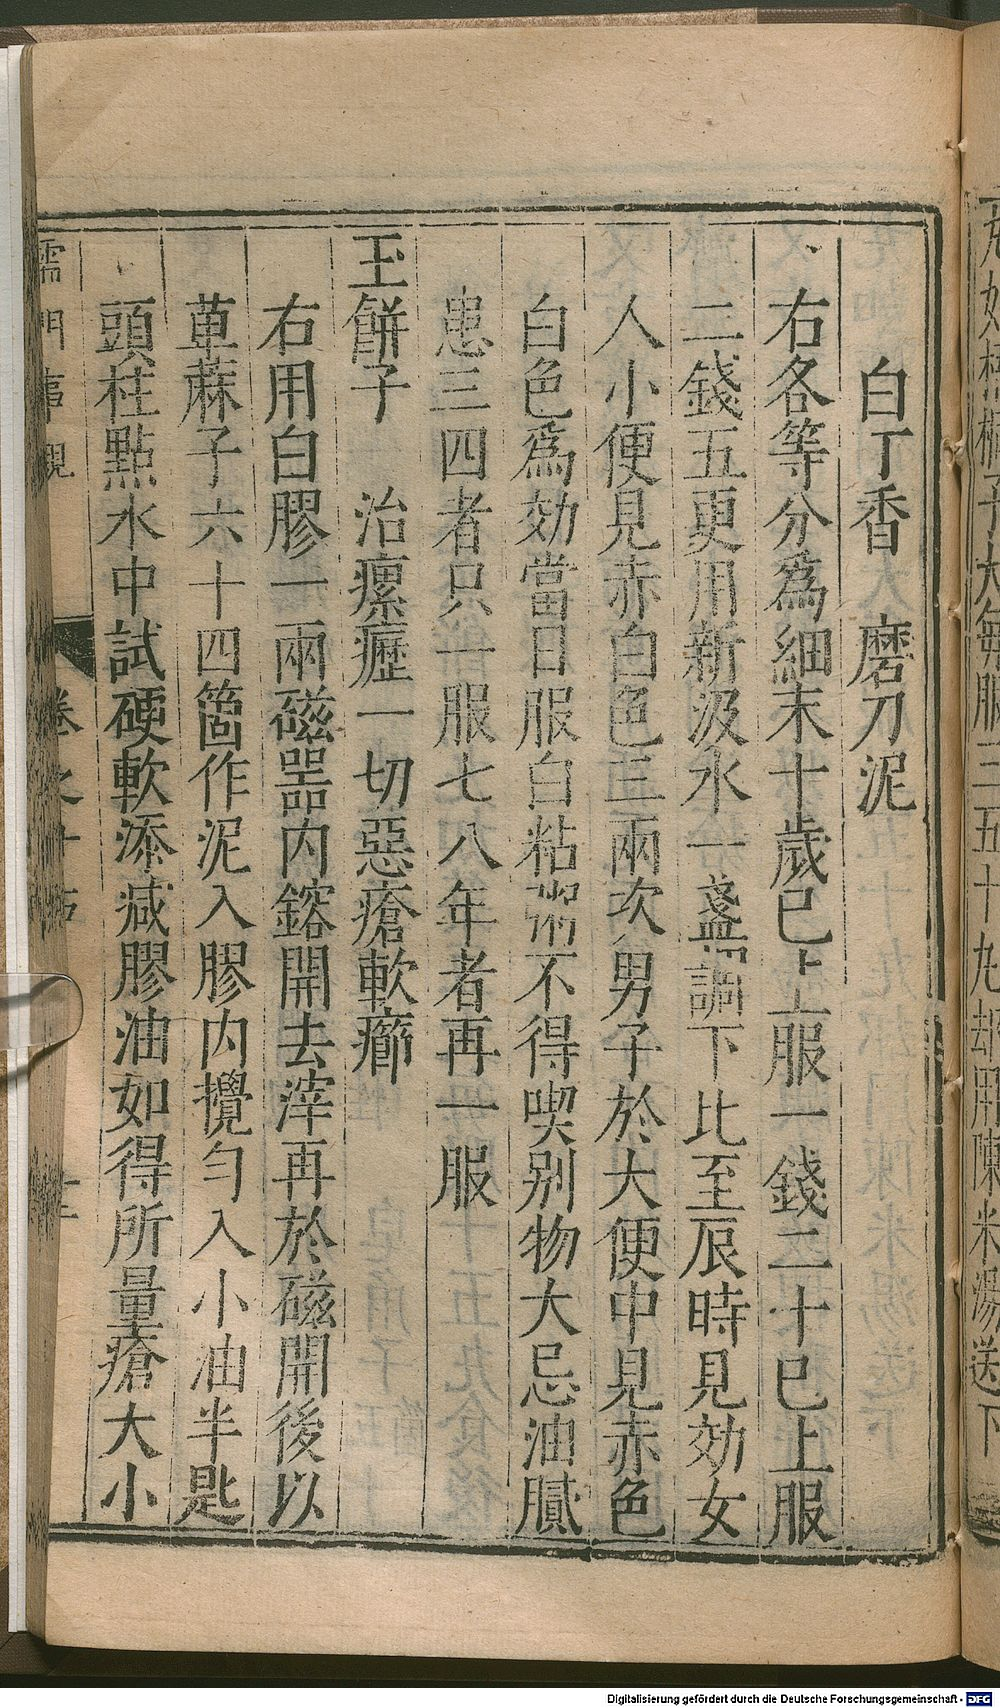 白丁香　磨刀泥
右各等分爲細末十歲已上服一錢二十已上服
二錢五更用新汲水一盞調下比至辰時見効女
人小便見赤白色三兩次男子於大便中見赤色
白色爲効當日服白粘粥不得喫别物大忌油膩
患三四者只一服七八年者再一服
玉餅子　治瘰癧一切惡瘡軟癤
右用白膠一兩磁噐内鎔開去滓再於磁開後以
萆蔴子六十四箇作泥入膠内攪勻入小油半匙
頭柱點水中試硬軟添减膠油如得所量瘡大小
儒門事親　卷之十五
丸如梧桐子大每服三五十丸却用陳米湯送下
Digitalisierung gefördert durch die Deutsche Forschungsgemeinschaft - DFG